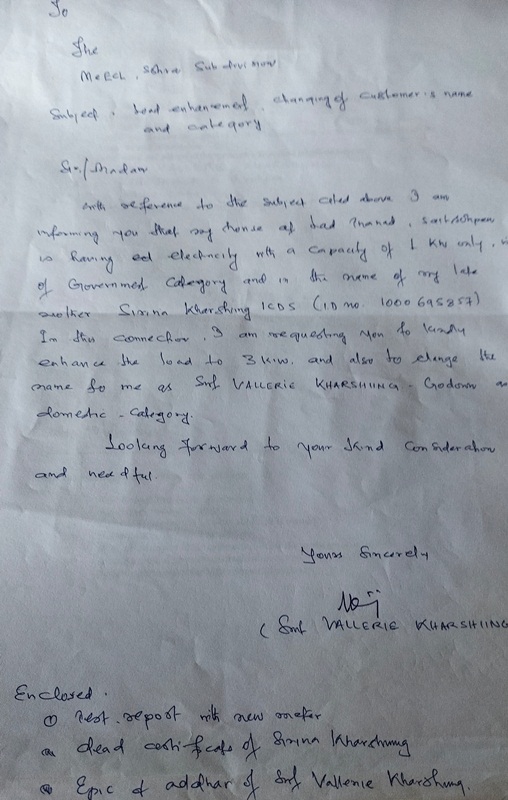 To
The
MePDCL, Sohra Sub division
Subject : Load enhancement, changing of customer's name
and category
Sir/Madam
with reference to the subject cited above I am
informing you that my house at
is having electricity with a capacity of 1 KW only,
of Government Category and in the name of my late
mother Sirina Kharshiing ICDS (ID no. 1000695857)
In this connection, I am requesting you to kindly
enhance the load to 3 k.w. and also to change the
name to me as Smt VALLERIE KHARSHIING - Godown as
domestic - category.
Looking forward to your kind consideration
and needful.
Yours Sincerely
( Smt VALLERIE KHARSHIING
Enclosed.
① Test report with new meter
② dead certificate of Sirina Kharshiing
③ Epic & addhar of Smt Vallerie Kharshiing.